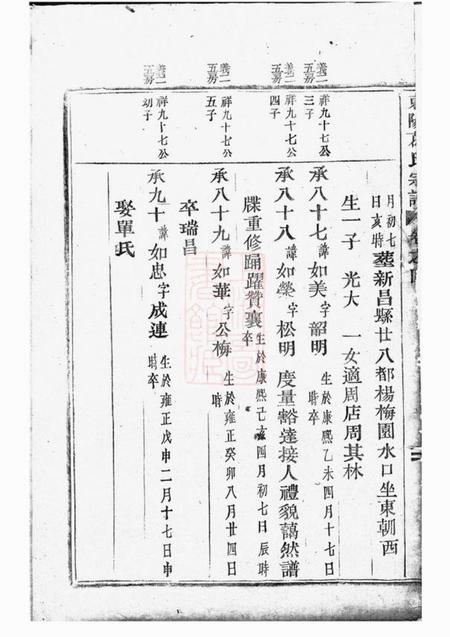 月初七
日亥時
塟新昌縣廿八都楊梅園水口坐東朝西
生一子 光大 一女適周店周其林
義二
五房
祥九十七公
三子
承八十七諱如美字韶明
生於康熙乙未四月十七日
時卒
義二
五房
祥九十七公
四子
承八十八諱如榮字松明 度量豁達接人禮貌藹然譜
牒重修踊躍贊襄
生於康熙己亥四月初七日辰時
卒
義二
五房
祥九十七公
五子
承八十九諱如華字公梅
生於雍正癸卯八月廿四日
時
卒瑞昌
義二
五房
祥九十七公
幼子
承九十諱如忠字成連
生於雍正戊申二月十七日申
時卒
娶單氏